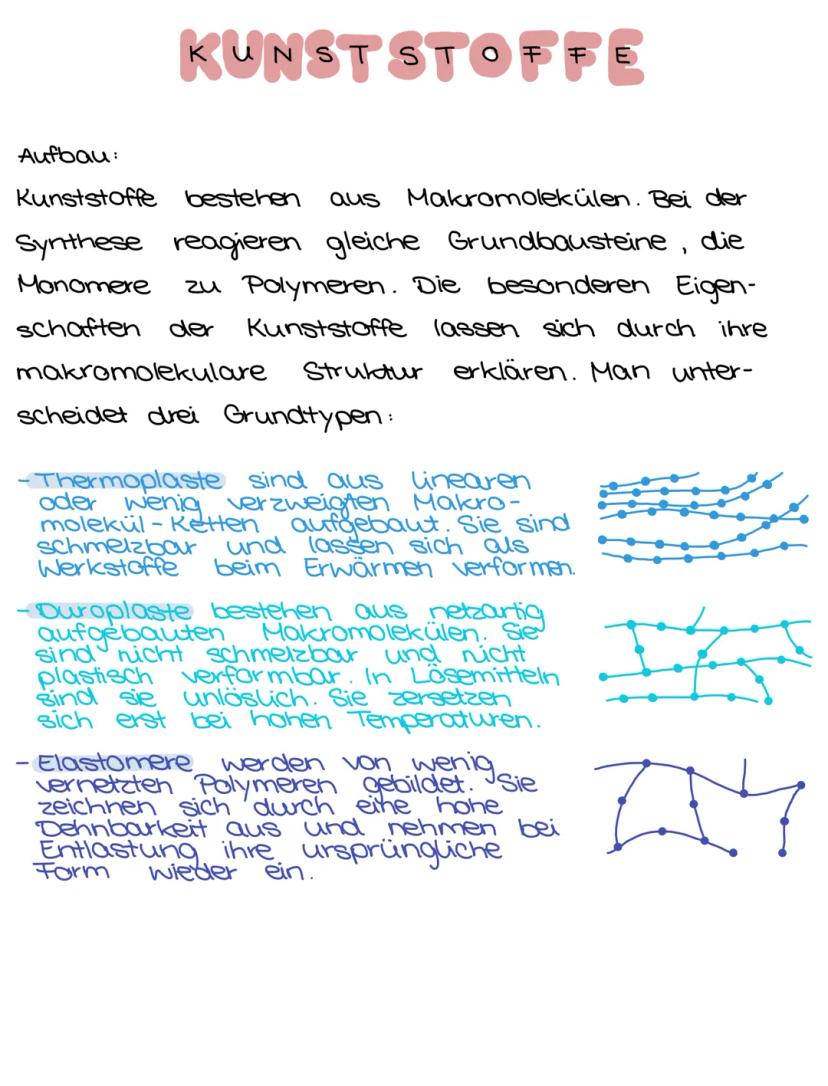 KUNSTSTOFFE
Aufbau:
Kunststoffe bestehen aus Makromolekülen. Bei der
Synthese reagieren gleiche Grundbausteine, die
Monomere zu Polymeren. Die besonderen Eigen-
schaften der Kunststoffe lassen sich durch ihre
makromolekulare Struktur erklären. Man unter-
scheidet drei Grundtypen:
- Thermoplaste sind aus linearen
oder wenig verzweigten Makro-
molekül-Ketten aufgebaut. Sie sind
schmelzbar und lassen sich als
Werkstoffe beim Erwärmen verformen.
- Duroplaste bestehen aus netzartig
aufgebauten Makromolekülen. Sie
sind nicht schmelzbar und nicht
plastisch verformbar. In Lösemitteln
sind sie unlöslich. Sie zersetzen
sich erst bei hohen Temperaturen.
- Elastomere werden von wenig
vernetzten Polymeren gebildet. Sie
zeichnen sich durch eine hohe
Dehnbarkeit aus und nehmen bei
Entlastung ihre ursprüngliche
Form wieder ein.